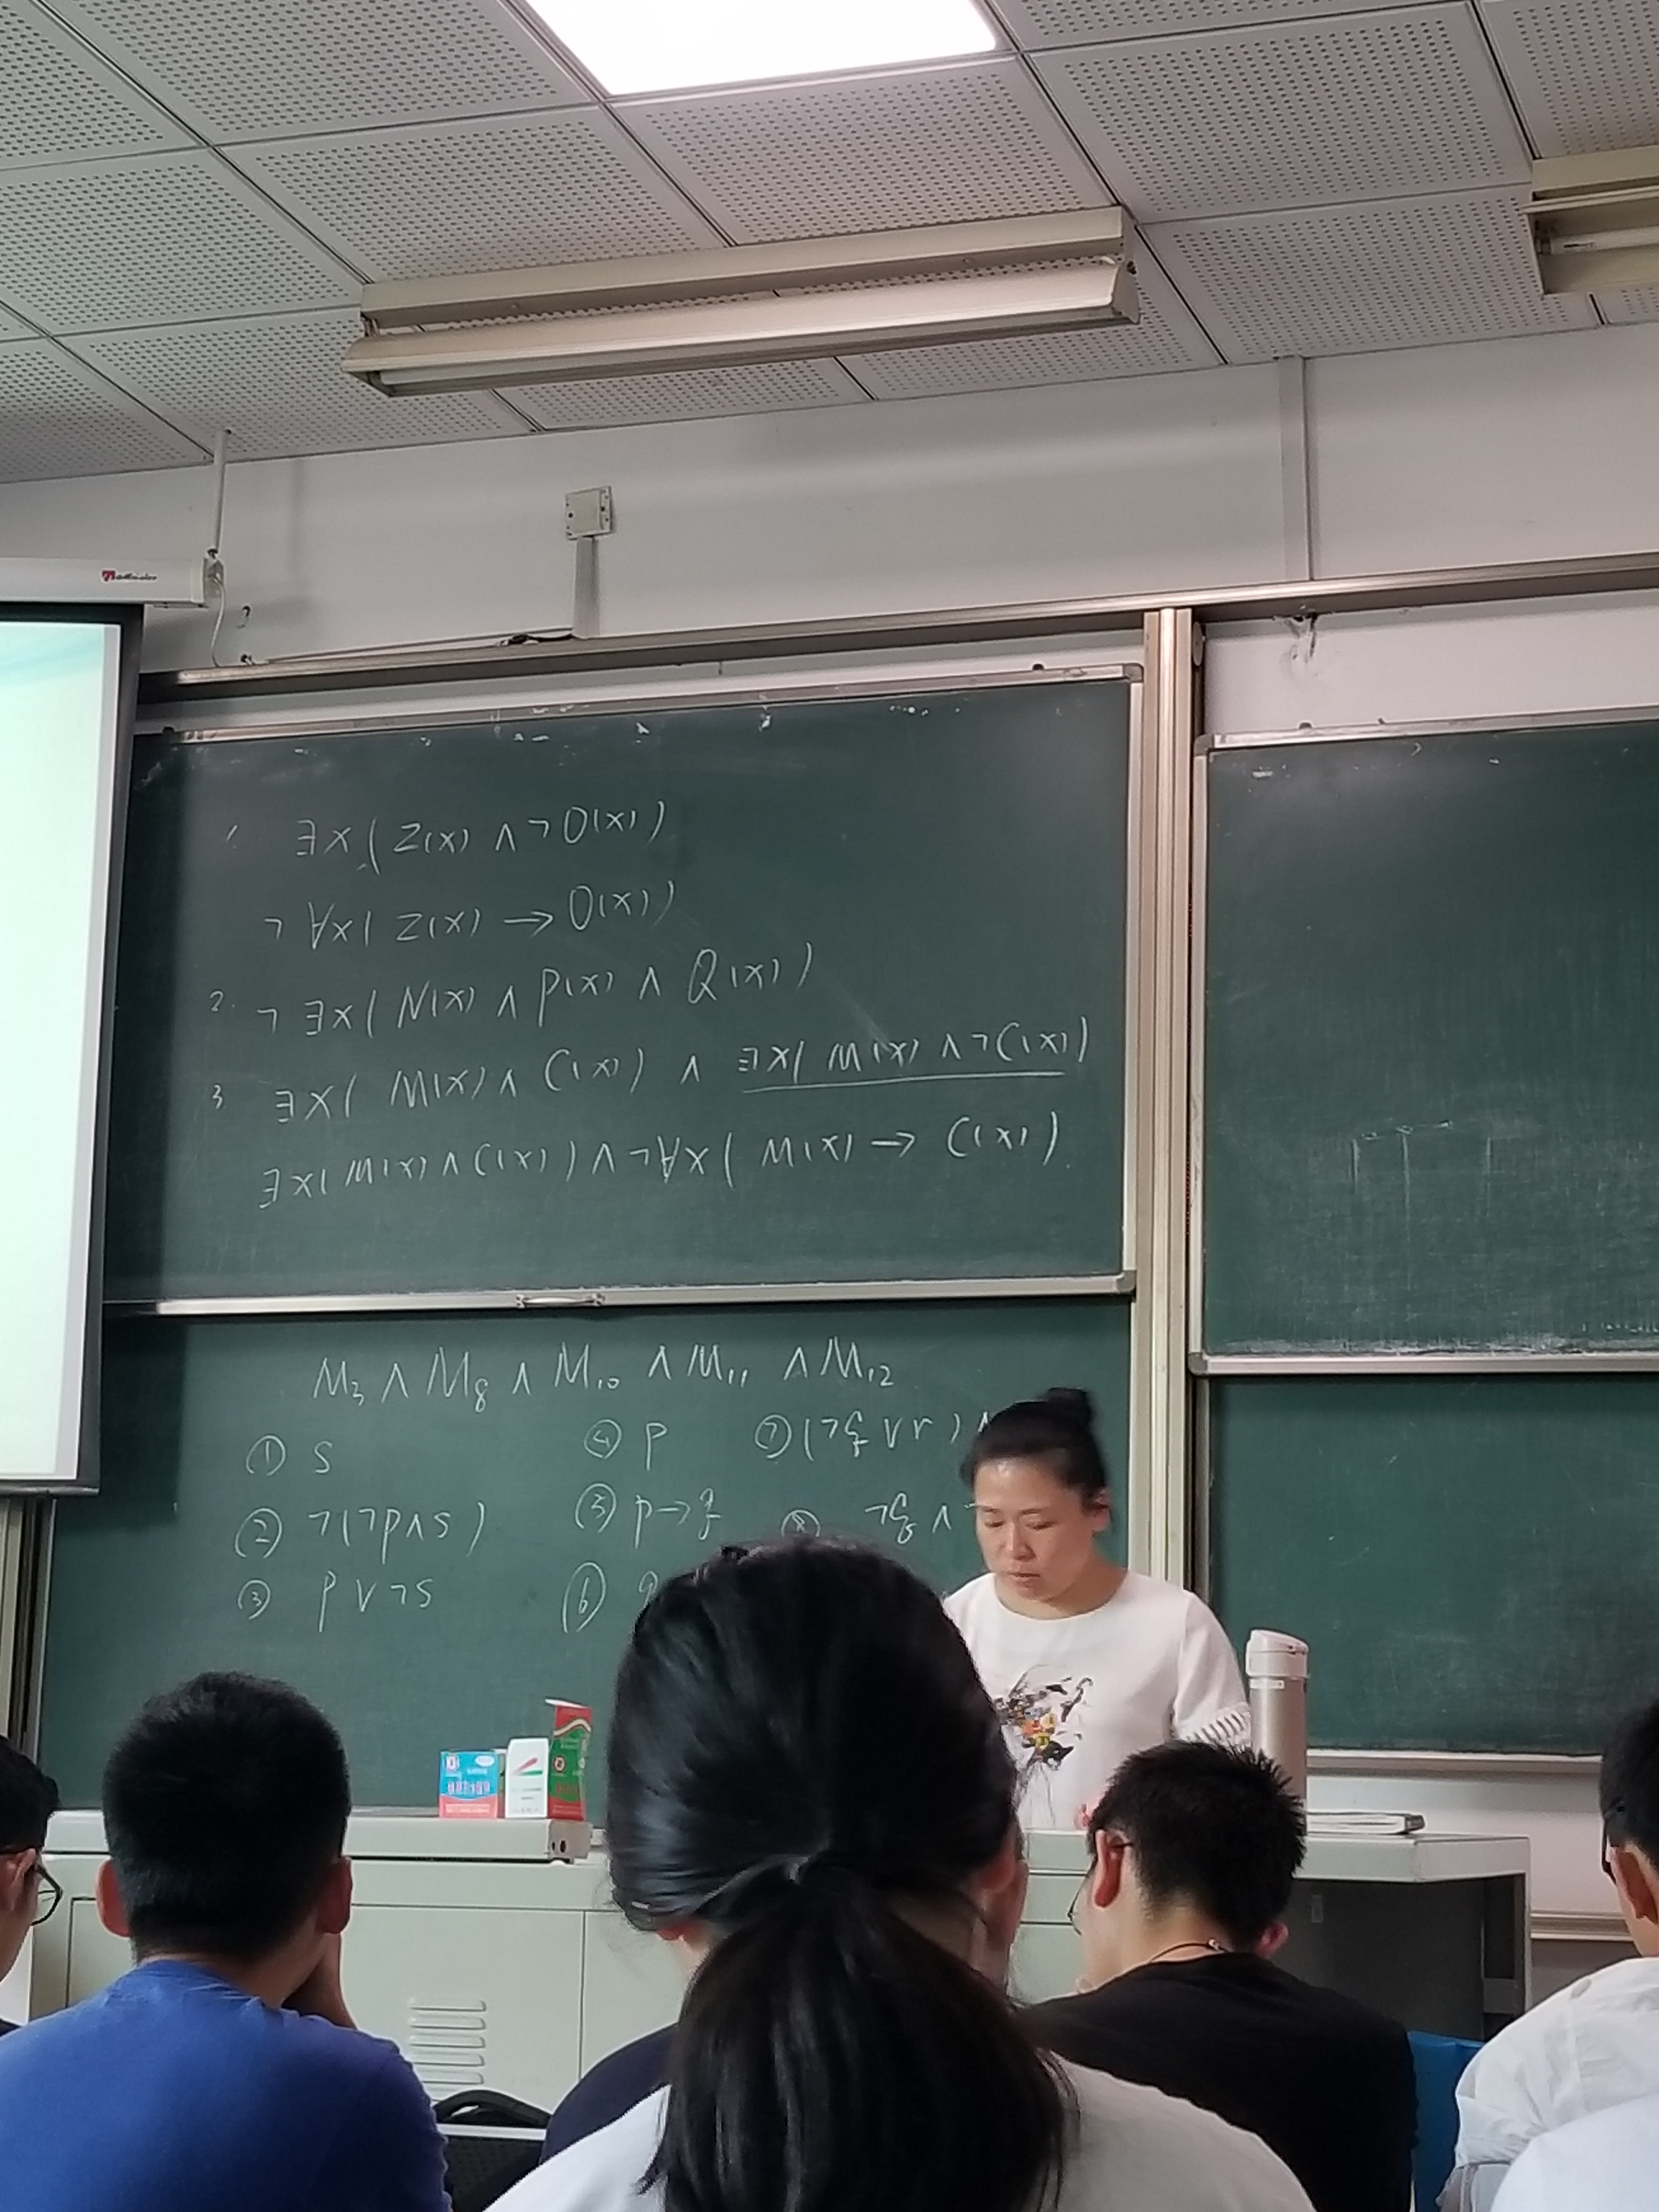 1. ∃x(Z(x)∧¬O(x))
¬∀x(Z(x)→O(x))
2. ¬∃x(N(x)∧P(x)∧Q(x))
3. ∃x(M(x)∧C(x))∧∃x(M(x)∧¬C(x))
∃x(M(x)∧C(x))∧¬∀x(M(x)→C(x))
M₃∧M₈∧M₁₀∧M₁₁∧M₁₂
① S ④ p ⑦ (¬q∨r)∧
② ¬(¬p∧S) ⑤ p→q ⑧ ¬q∧
③ p∨¬S ⑥ q